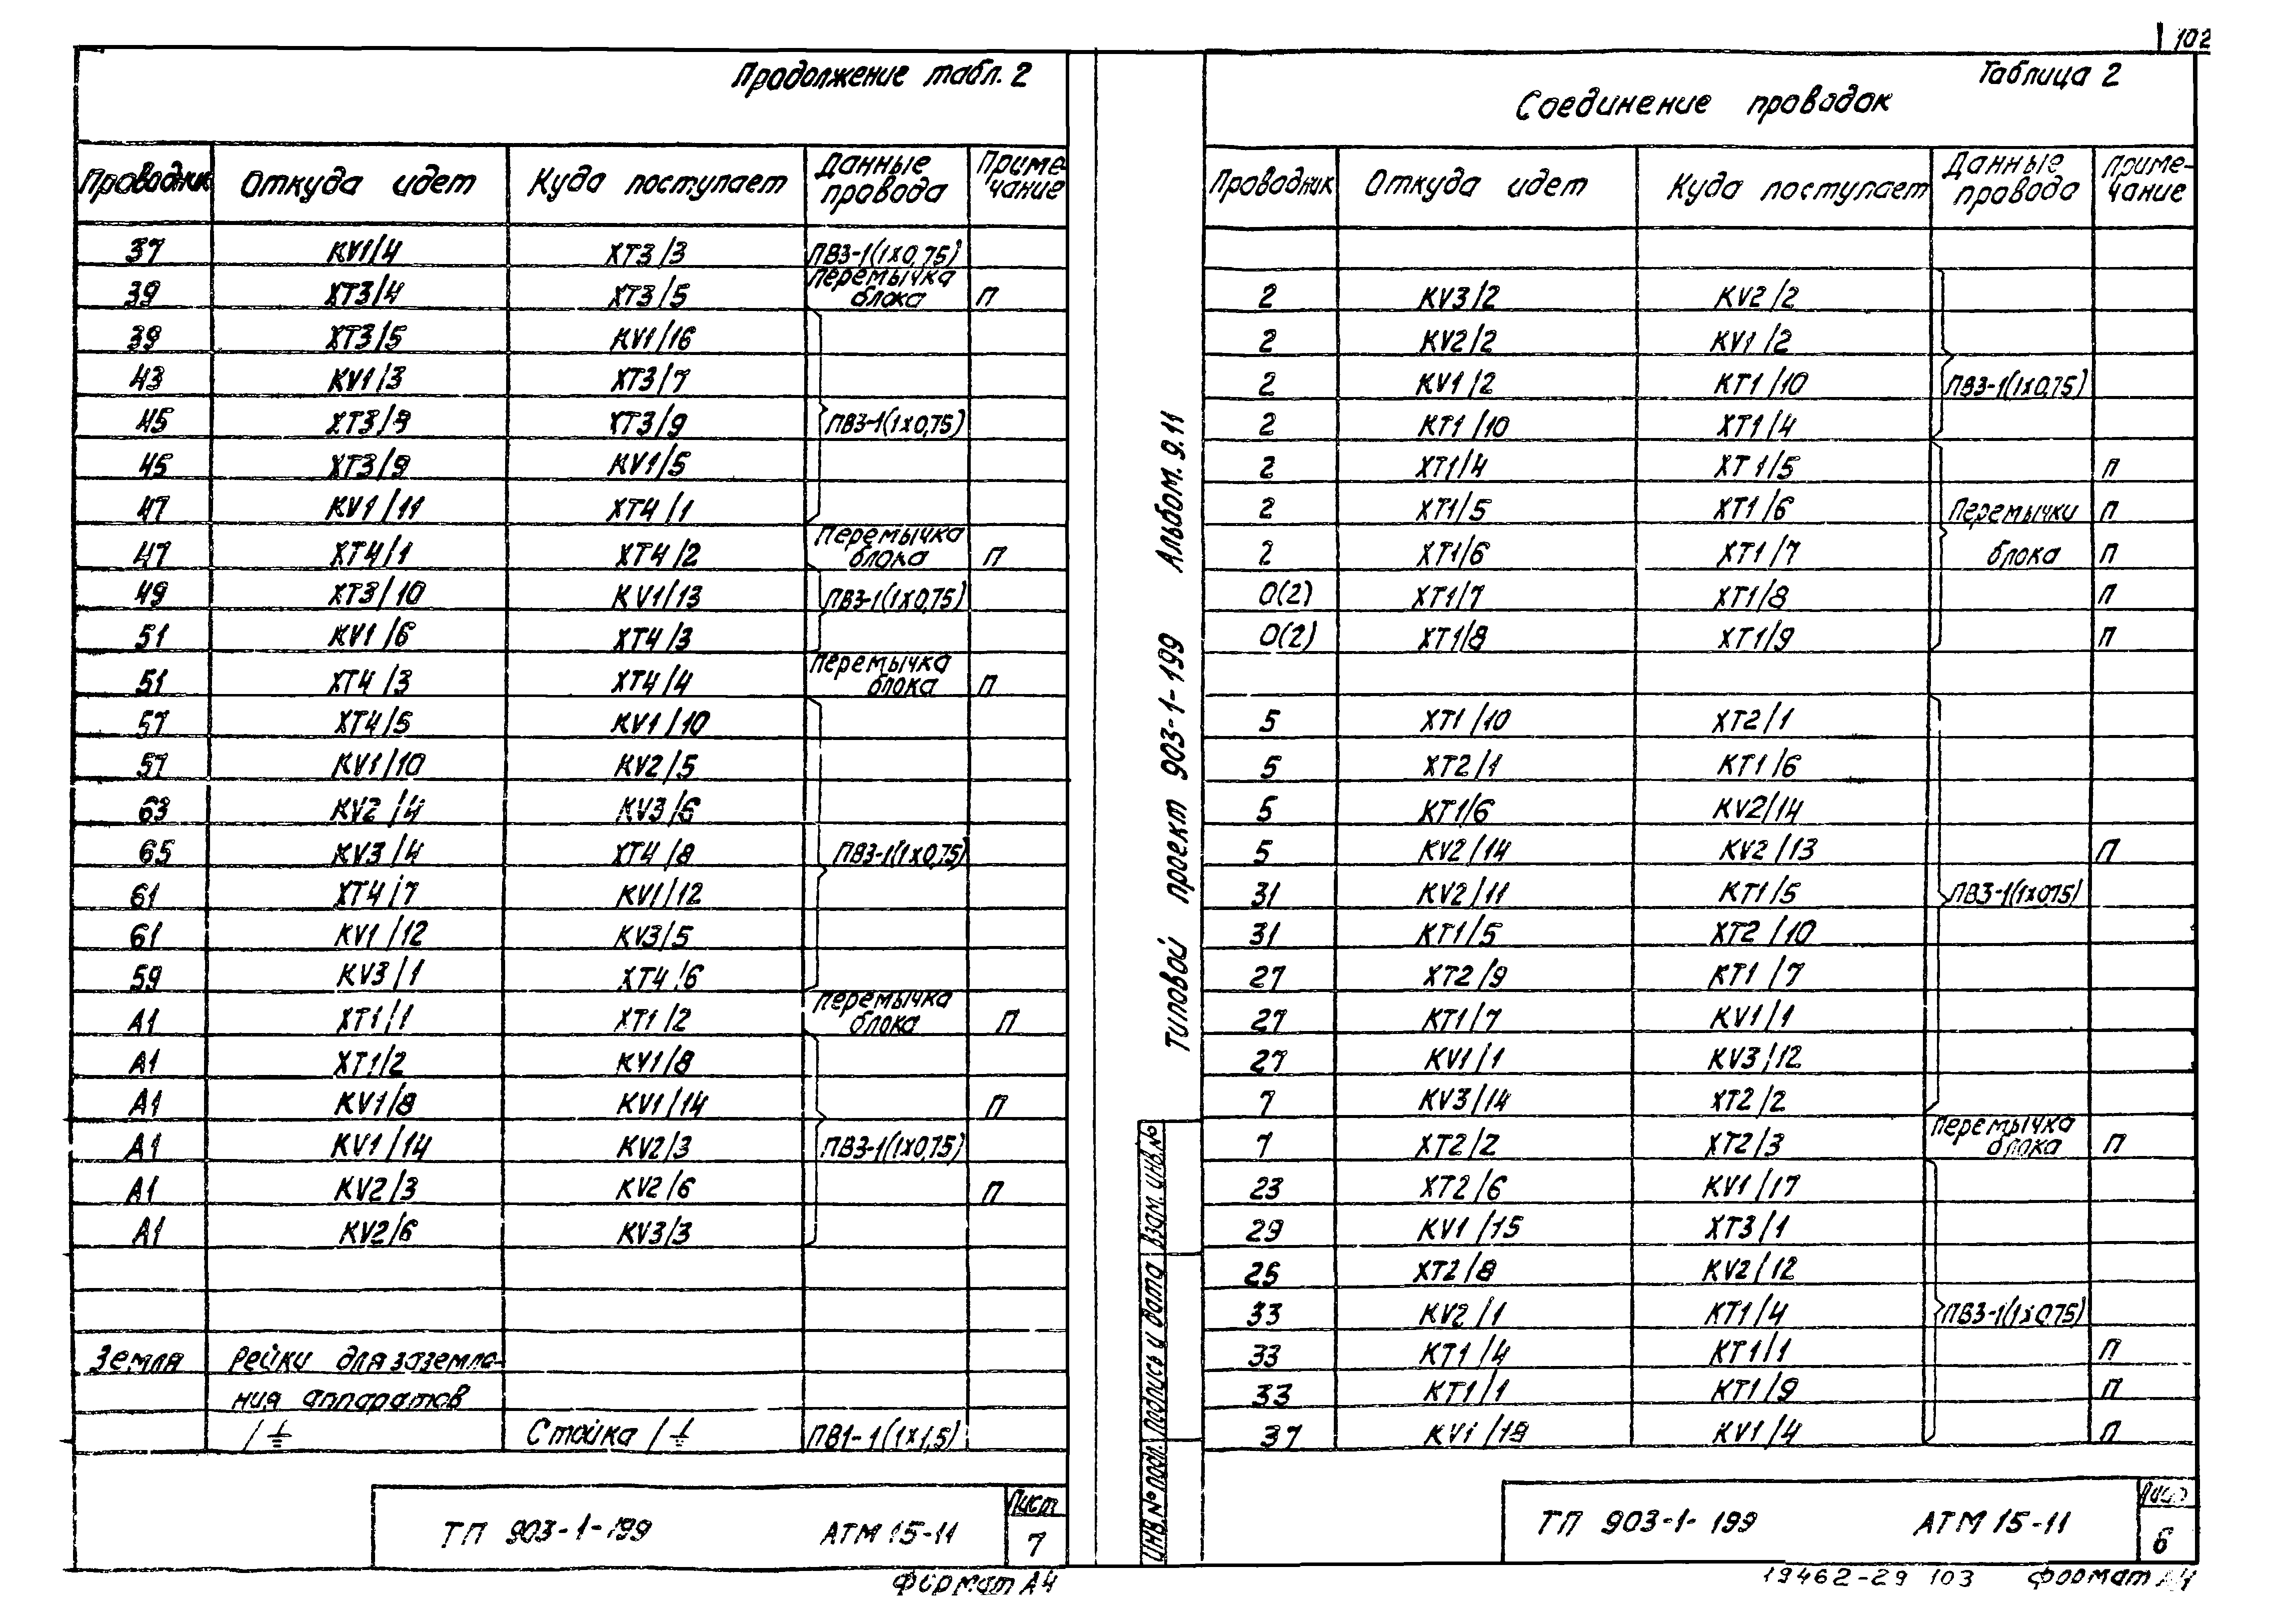 102
Продолжение табл. 2
Проводник Откуда идет Куда поступает Данные провода Примечание
37 KV1/4 XT3/3 ПВ3-1(1x0,75)
39 XT3/4 XT3/5 Перемычка блока П
39 XT3/5 KV1/16
43 KV1/3 XT3/7
45 XT3/8 XT3/9 ПВ3-1(1x0,75)
45 XT3/9 KV1/5
47 KV1/11 XT4/1
47 XT4/1 XT4/2 Перемычка блока П
49 XT3/10 KV1/13 ПВ3-1(1x0,75)
51 KV1/6 XT4/3
51 XT4/3 XT4/4 Перемычка блока П
57 XT4/5 KV1/10
57 KV1/10 KV2/5
63 KV2/4 KV3/6
65 KV3/4 XT4/8 ПВ3-1(1x0,75)
61 XT4/7 KV1/12
61 KV1/12 KV3/5
59 KV3/1 XT4/6
A1 XT1/1 XT1/2 Перемычка блока П
A1 XT1/2 KV1/8
A1 KV1/8 KV1/14 П
A1 KV1/14 KV2/3 ПВ3-1(1x0,75)
A1 KV2/3 KV2/6 П
A1 KV2/6 KV3/3
Земля Рейки для заземле-
ния аппаратов
/⏚ Стойка/⏚ ПВ1-1(1x1,5)
ТП 903-1-199 АТМ 15-11 Лист 7
Формат А4
Типовой проект 903-1-199 Альбом. 9.11
Инв.№ подл. Подпись и дата Взам. инв.№
Таблица 2
Соединение проводок
Проводник Откуда идет Куда поступает Данные провода Примечание
2 KV3/2 KV2/2
2 KV2/2 KV1/2
2 KV1/2 KT1/10 ПВ3-1(1x0,75)
2 KT1/10 XT1/4
2 XT1/4 XT1/5 П
2 XT1/5 XT1/6 Перемычки П
2 XT1/6 XT1/7 блока П
0(2) XT1/7 XT1/8 П
0(2) XT1/8 XT1/9 П
5 XT1/10 XT2/1
5 XT2/1 KT1/6
5 KT1/6 KV2/14
5 KV2/14 KV2/13 П
31 KV2/11 KT1/5 ПВ3-1(1x0,75)
31 KT1/5 XT2/10
27 XT2/9 KT1/7
27 KT1/7 KV1/1
27 KV1/1 KV3/12
7 KV3/14 XT2/2
7 XT2/2 XT2/3 Перемычка блока П
23 XT2/6 KV1/17
29 KV1/15 XT3/1
25 XT2/8 KV2/12
33 KV2/1 KT1/4 ПВ3-1(1x0,75)
33 KT1/4 KT1/1 П
33 KT1/1 KT1/9 П
37 KV1/18 KV1/4 П
ТП 903-1-199 АТМ 15-11 Лист 6
19462-29 103 Формат А4